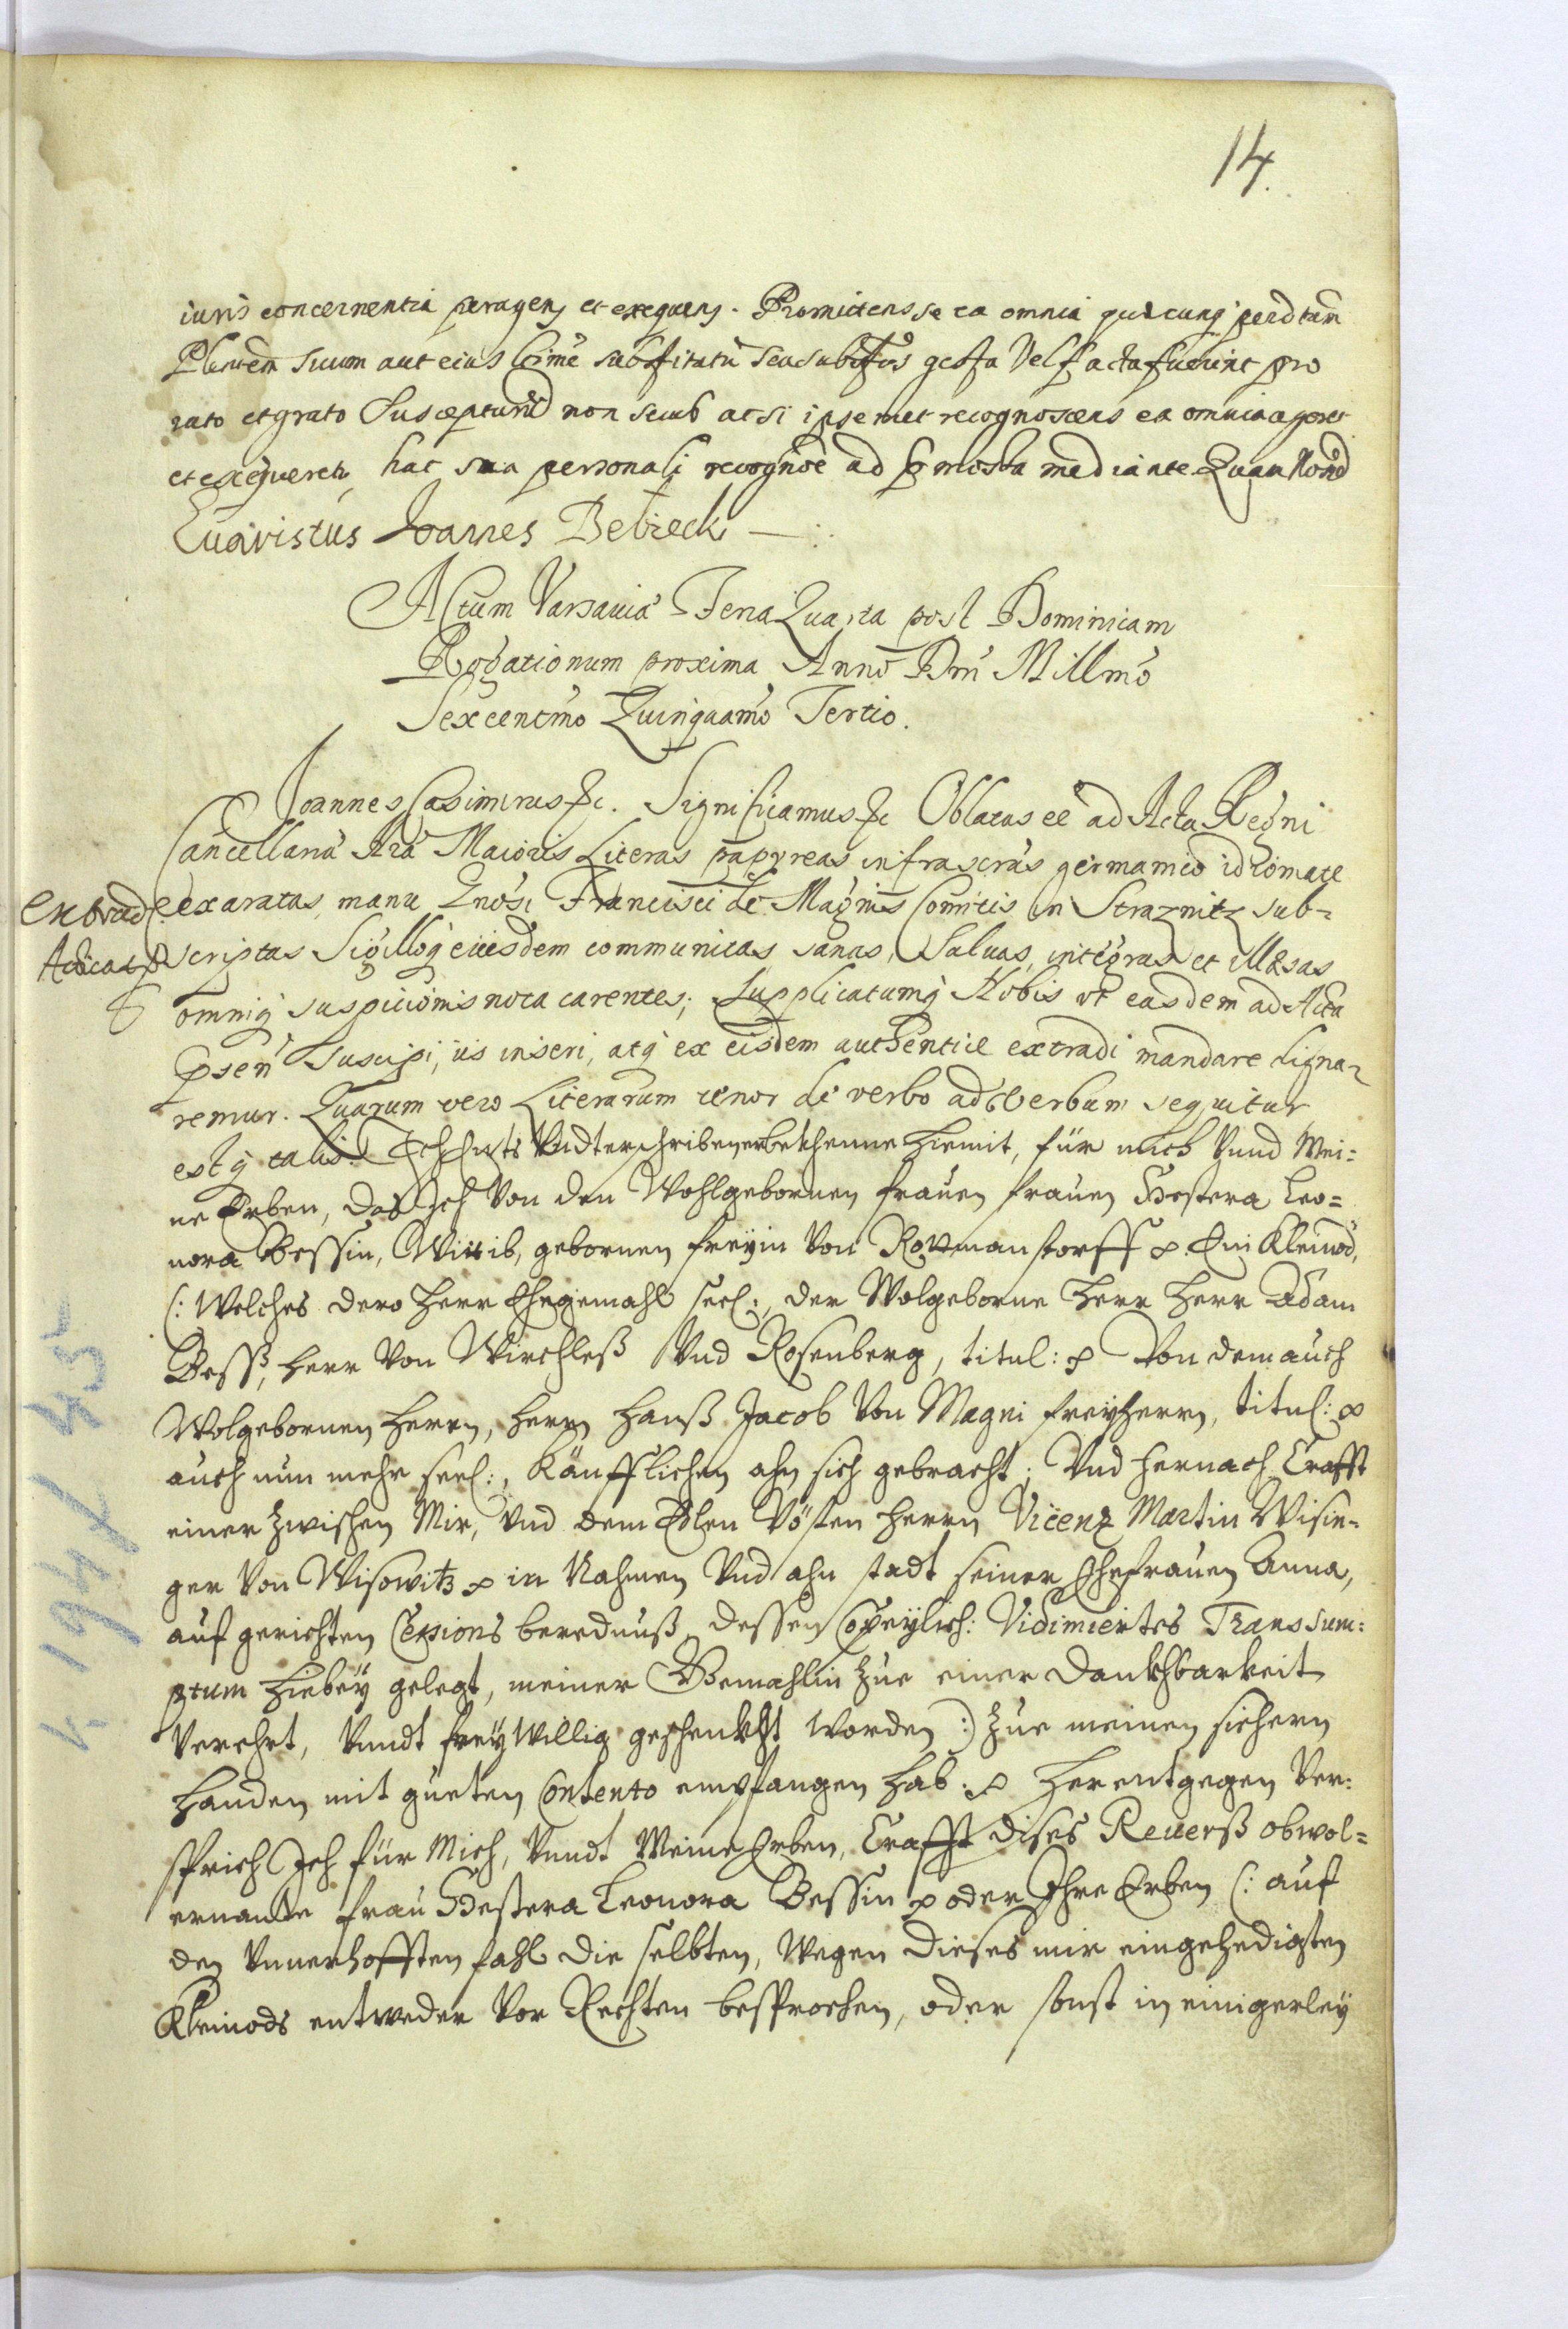 14.
iuris concernentia peragens et exequens. Promittens se ea omnia quæcunq; per dictum
Plentem suum aut eius ltime substitutũ seu substitos gesta Vel facta fuerint pro
rato et grato Suscepturũ non secus ac si ipsemet recognoscens ea omnia ageret
et exequeretr, hac sua personali recognõe ad præmissa mediante
Euaristus Joannes Belzeck —:
Actum Varsauiæ Feria Quarta post Dominicam
Rogationum proxima Anno Dni Millmo
Sexcentmo Quinquagmo Tertio.
Joannes Casimirus &c. Significamus &c Oblatas eẽ ad Acta Regni
Cancellariæ Nræ Maioris Literas papyreas infrascrãs germanico idiomate
exaratas, manu Gnosi Francisci de Magnis Comitis in Straznitz sub-
scriptas Sigilloq; eiusdem communitas, sanas, Saluas, integras et illæsas
omniq; suspicionis nota carentes; Supplicatumq; Nobis vt easdem ad Acta
præsen Suscipi, iis inseri, atq; ex eisdem authentice extradi mandare digna-
remur. Quarum vero Literarum tenor de verbo ad Verbum sequitur
estq; talis. Ich Endts Vndterschribener bekhenne hiemit, für mich Vnnd Mei:
ne Erben, das Ich Von der Wohlgebornen frauen frauen Hestera Leo=
nora Bessin, Wittib, gebornen freyin Von Rottmanstorff &. Ein Kleinod,
(: Welches dero Herr Ehegemahl seel:, der Wolgeborne Herr Herr Adam
Bess, Herr Von Wirchless Vnd Rosenberg, titul: & Von dem auch
Wolgebornen Herrn, Herrn Hanß Jacob Von Magni freyherrn, titul: &
auch nun mehr seel:, käufflichen ahn sich gebracht; Vnd hernach Crafft
einer Zwischen Mir, Vnd dem Edlen Vösten Herrn Vicenz Martin Wisin-
ger Von Wisowitz & in Nahmen Vnd ahn stadt seiner Ehefrauen Anna,
aufgerichten Cessions berednuß, dessen Copeylich: Vidimiertes Transsum:
ptum hiebey gelegt, meiner Gemahlin Zue einer Dankhbarkeit
Verehrt, Vnndt freywillig geschenkht worden :) Zue meinen sichern
Handen mit gueten Contento empfangen hab. & Herentgegen Ver:
sprich Ich für Mich, Vnndt Meine Erben, Crafft dises Reuerß obwol=
ernante frau Hestera Leonora Bessin & oder Ihre Erben (: auf
den Vnuerhofften fahl die selbten, Wegen dieses mir eingehendigten
Kleinods entweder Vor Rechten besprochen, oder sonst in einigerley